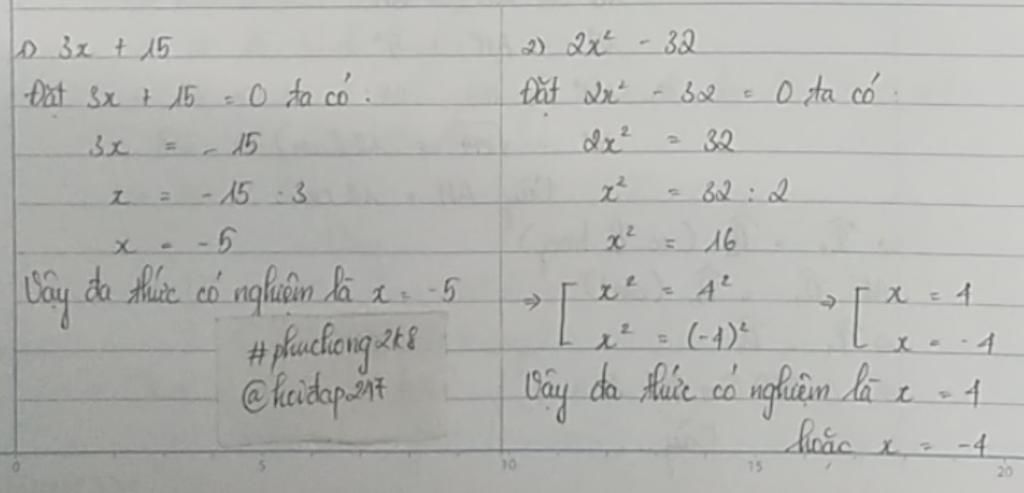 1) 3x + 15
Đặt 3x + 15 = 0 ta có:
3x = -15
x = -15 : 3
x = -5
Vậy đa thức có nghiệm là x = -5
#phuchong2k8
@hoidap247
2) 2x² - 32
Đặt 2x² - 32 = 0 ta có:
2x² = 32
x² = 32 : 2
x² = 16
⇒ [ x² = 4² ⇒ [ x = 4
x² = (-4)² x = -4
Vậy đa thức có nghiệm là x = 4
hoặc x = -4
0 5 10 15 20